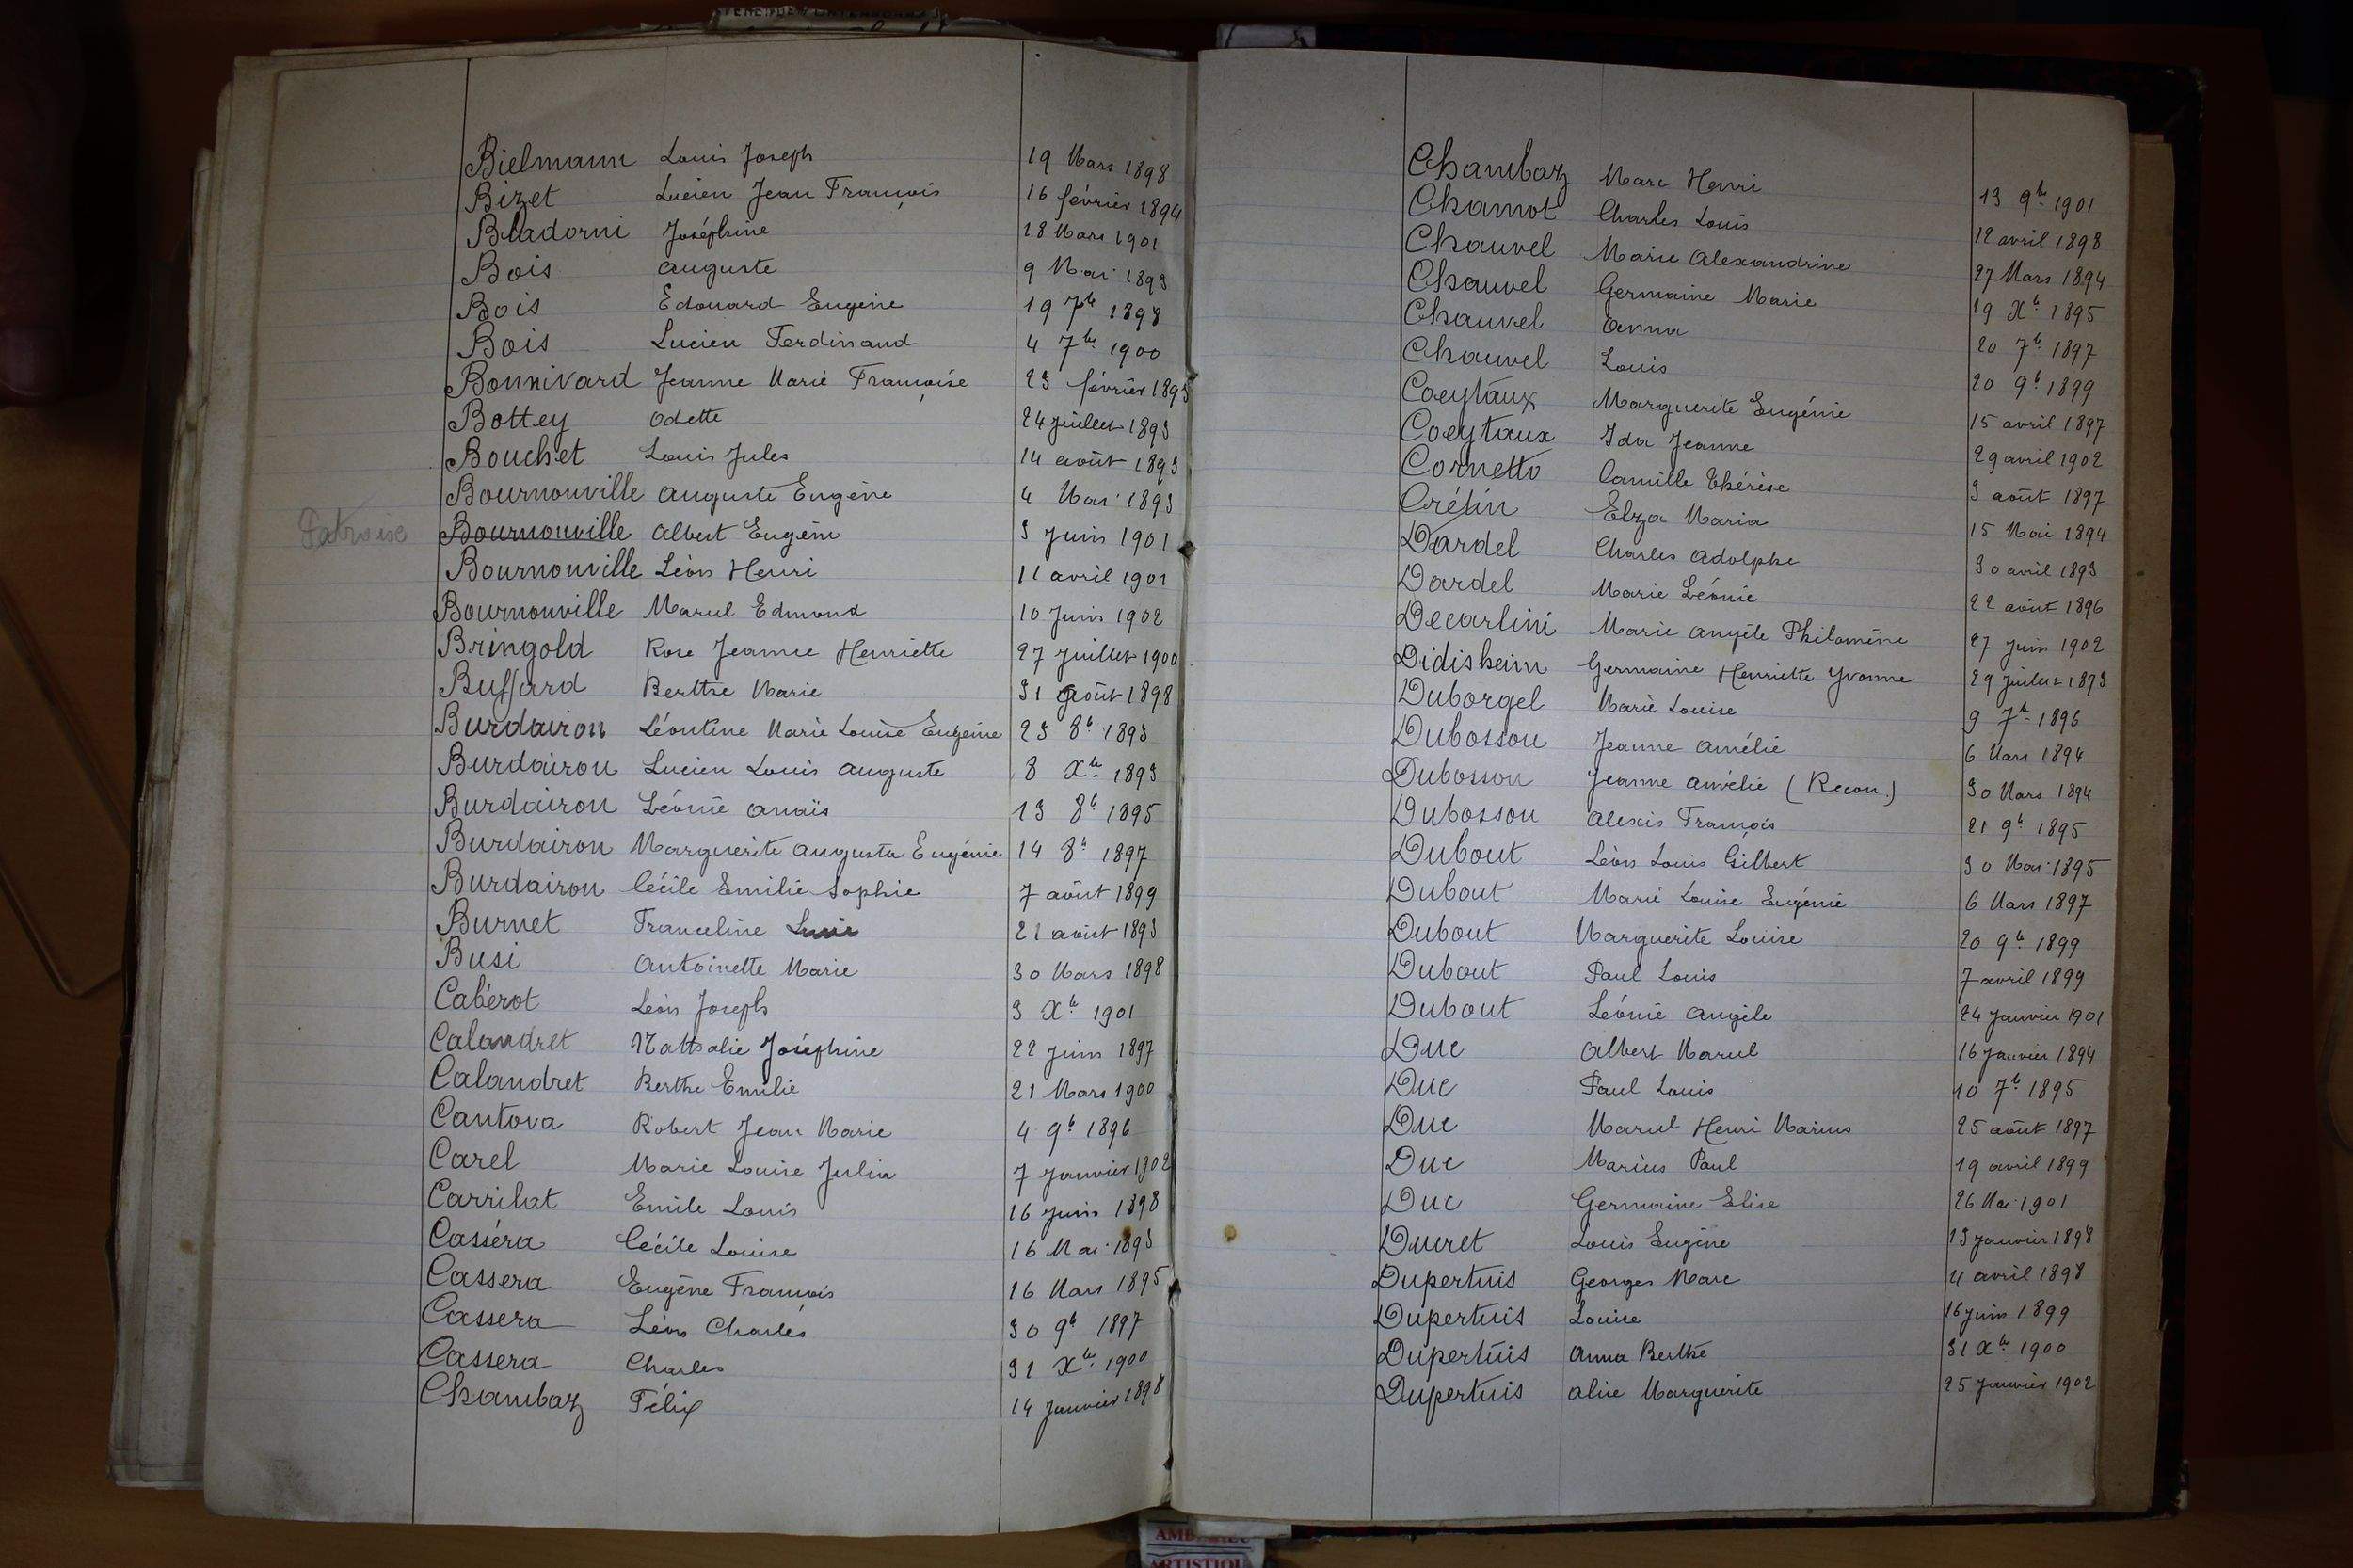 Bielmann Louis Joseph 19 Mars 1898
Bizet Lucien Jean François 16 février 1894
Bladorni Joséphine 18 Mars 1901
Bois Auguste 9 Mai 1893
Bois Edouard Eugène 19 7bre 1898
Bois Lucien Ferdinand 4 7bre 1900
Bonnivard Jeanne Marie Françoise 23 février 1893
Bottey Odette 24 juillet 1893
Bouchet Louis Jules 14 août 1893
Bournonville Auguste Eugène 4 Mai 1893
Bournonville Albert Eugène 3 Juin 1901
Bournonville Léon Henri 11 avril 1901
Bournonville Marcel Edmond 10 Juin 1902
Bringold Rose Jeanne Henriette 27 Juillet 1900
Buffard Berthe Marie 31 août 1898
Burdairon Léontine Marie Louise Eugénie 23 8b 1893
Burdairon Lucien Louis Auguste 8 Xbre 1893
Burdairon Léonie Anaïs 13 8b 1895
Burdairon Marguerite Augusta Eugénie 14 8b 1897
Burdairon Cécile Emilie Sophie 7 août 1899
Burnet Franceline 21 août 1893
Busi Antoinette Marie 30 Mars 1898
Cabérot Léon Joseph 3 Xbre 1901
Calandret Nathalie Joséphine 22 Juin 1897
Calandret Berthe Emilie 21 Mars 1900
Cantova Robert Jean Marie 4 9b 1896
Carel Marie Louise Julia 7 Janvier 1902
Carrihat Emile Louis 16 Juin 1898
Casséra Cécile Louise 16 Mai 1893
Cassera Eugène François 16 Mars 1895
Cassera Léon Charles 30 9b 1897
Cassera Charles 31 Xbre 1900
Chambaz Félix 14 Janvier 1898
Chambaz Marc Henri 13 9bre 1901
Chamot Charles Louis 12 avril 1898
Chauvel Marie Alexandrine 27 Mars 1894
Chauvel Germaine Marie 19 Xb 1895
Chauvel Anna 20 7b 1897
Chauvel Louis 20 9b 1899
Coeytaux Marguerite Eugénie 15 avril 1897
Coeytaux Ida Jeanne 29 avril 1902
Cornetto Camille Thérèse 3 août 1897
Crétin Elza Maria 15 Mai 1894
Dardel Charles Adolphe 30 avril 1893
Dardel Marie Léonie 22 août 1896
Decarlini Marie Angèle Philomène 27 Juin 1902
Didisheim Germaine Henriette Yvonne 29 Juillet 1893
Duborgel Marie Louise 9 7b 1896
Dubosson Jeanne Amélie 6 Mars 1894
Dubosson Jeanne Amélie (Recon.) 30 Mars 1894
Dubosson Alexis François 21 9b 1895
Dubout Léon Louis Gilbert 30 Mai 1895
Dubout Marie Louise Eugénie 6 Mars 1897
Dubout Marguerite Louise 20 9b 1899
Dubout Paul Louis 7 avril 1899
Dubout Léonie Angèle 24 Janvier 1901
Duc Albert Marcel 16 Janvier 1894
Duc Paul Louis 10 7b 1895
Duc Marcel Henri Marius 25 août 1897
Duc Marius Paul 19 avril 1899
Duc Germaine Elise 26 Mai 1901
Ducret Louis Eugène 13 Janvier 1898
Dupertuis Georges Marc 4 avril 1898
Dupertuis Louise 16 Juin 1899
Dupertuis Anna Berthe 31 Xbre 1900
Dupertuis Alice Marguerite 25 Janvier 1902